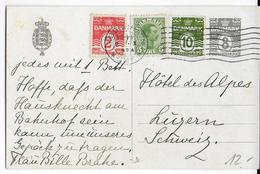 DANMARK
DANMARK
DANMARK
DANMARK
10
8
jedes mit 1 Bett.
Hoffe, daß der
Hausknecht am
Bahnhof sein
kann, um unseres
Gepäck zu tragen
Frau Bille Brahe.
Hôtel des Alpes
Luzern
Schweiz.
12.-